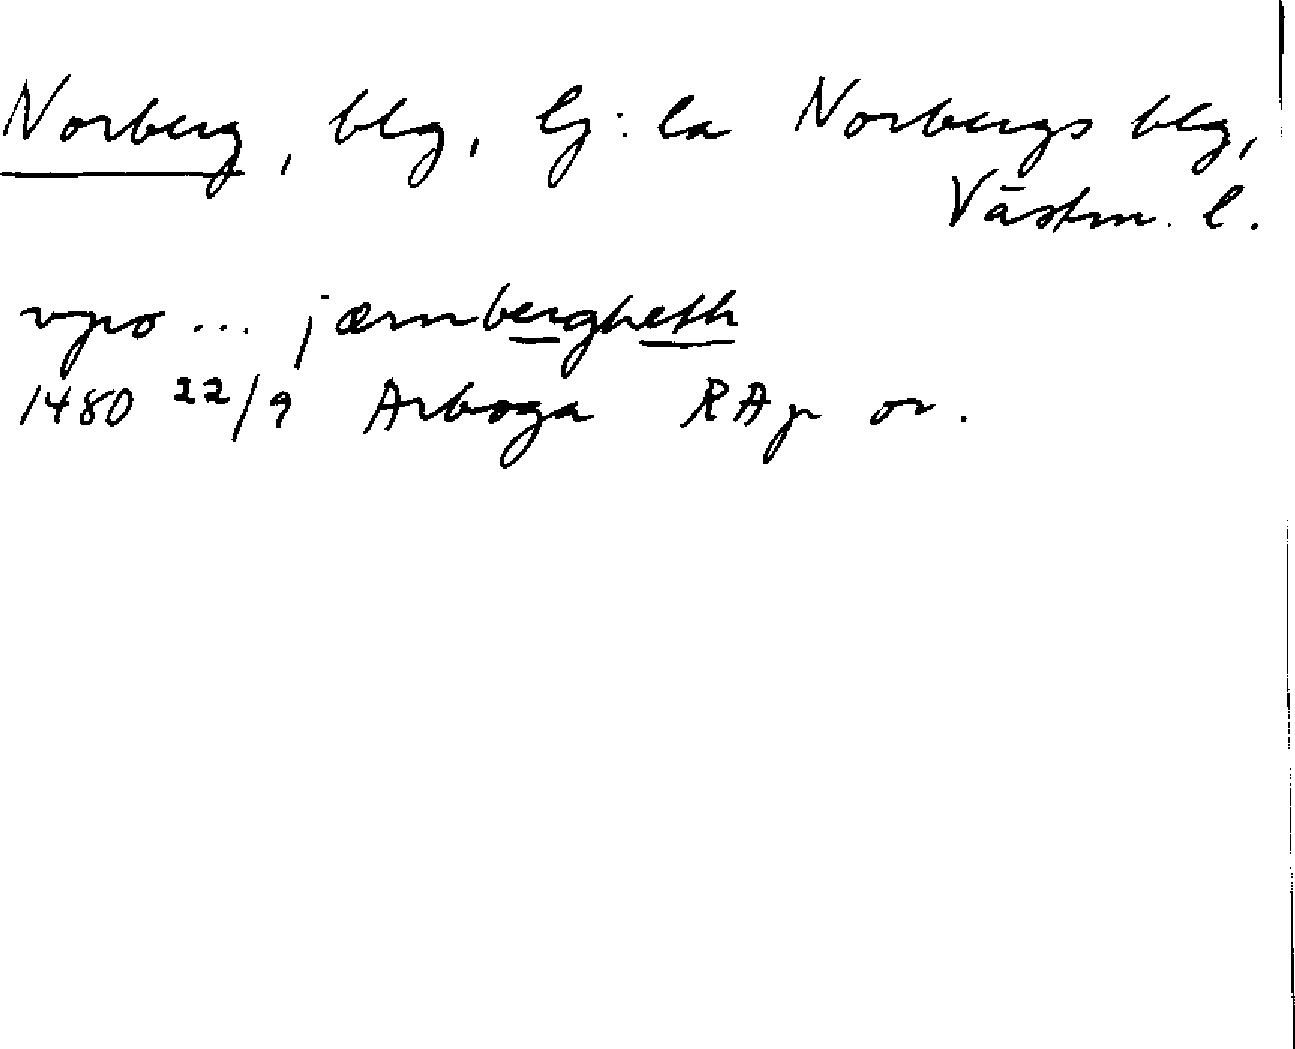 Norberg, blg, lj:la Norbergs blg,
Västm. l.
vpo ... jærnbergheth
1480 22/9 Arboga RAp or.